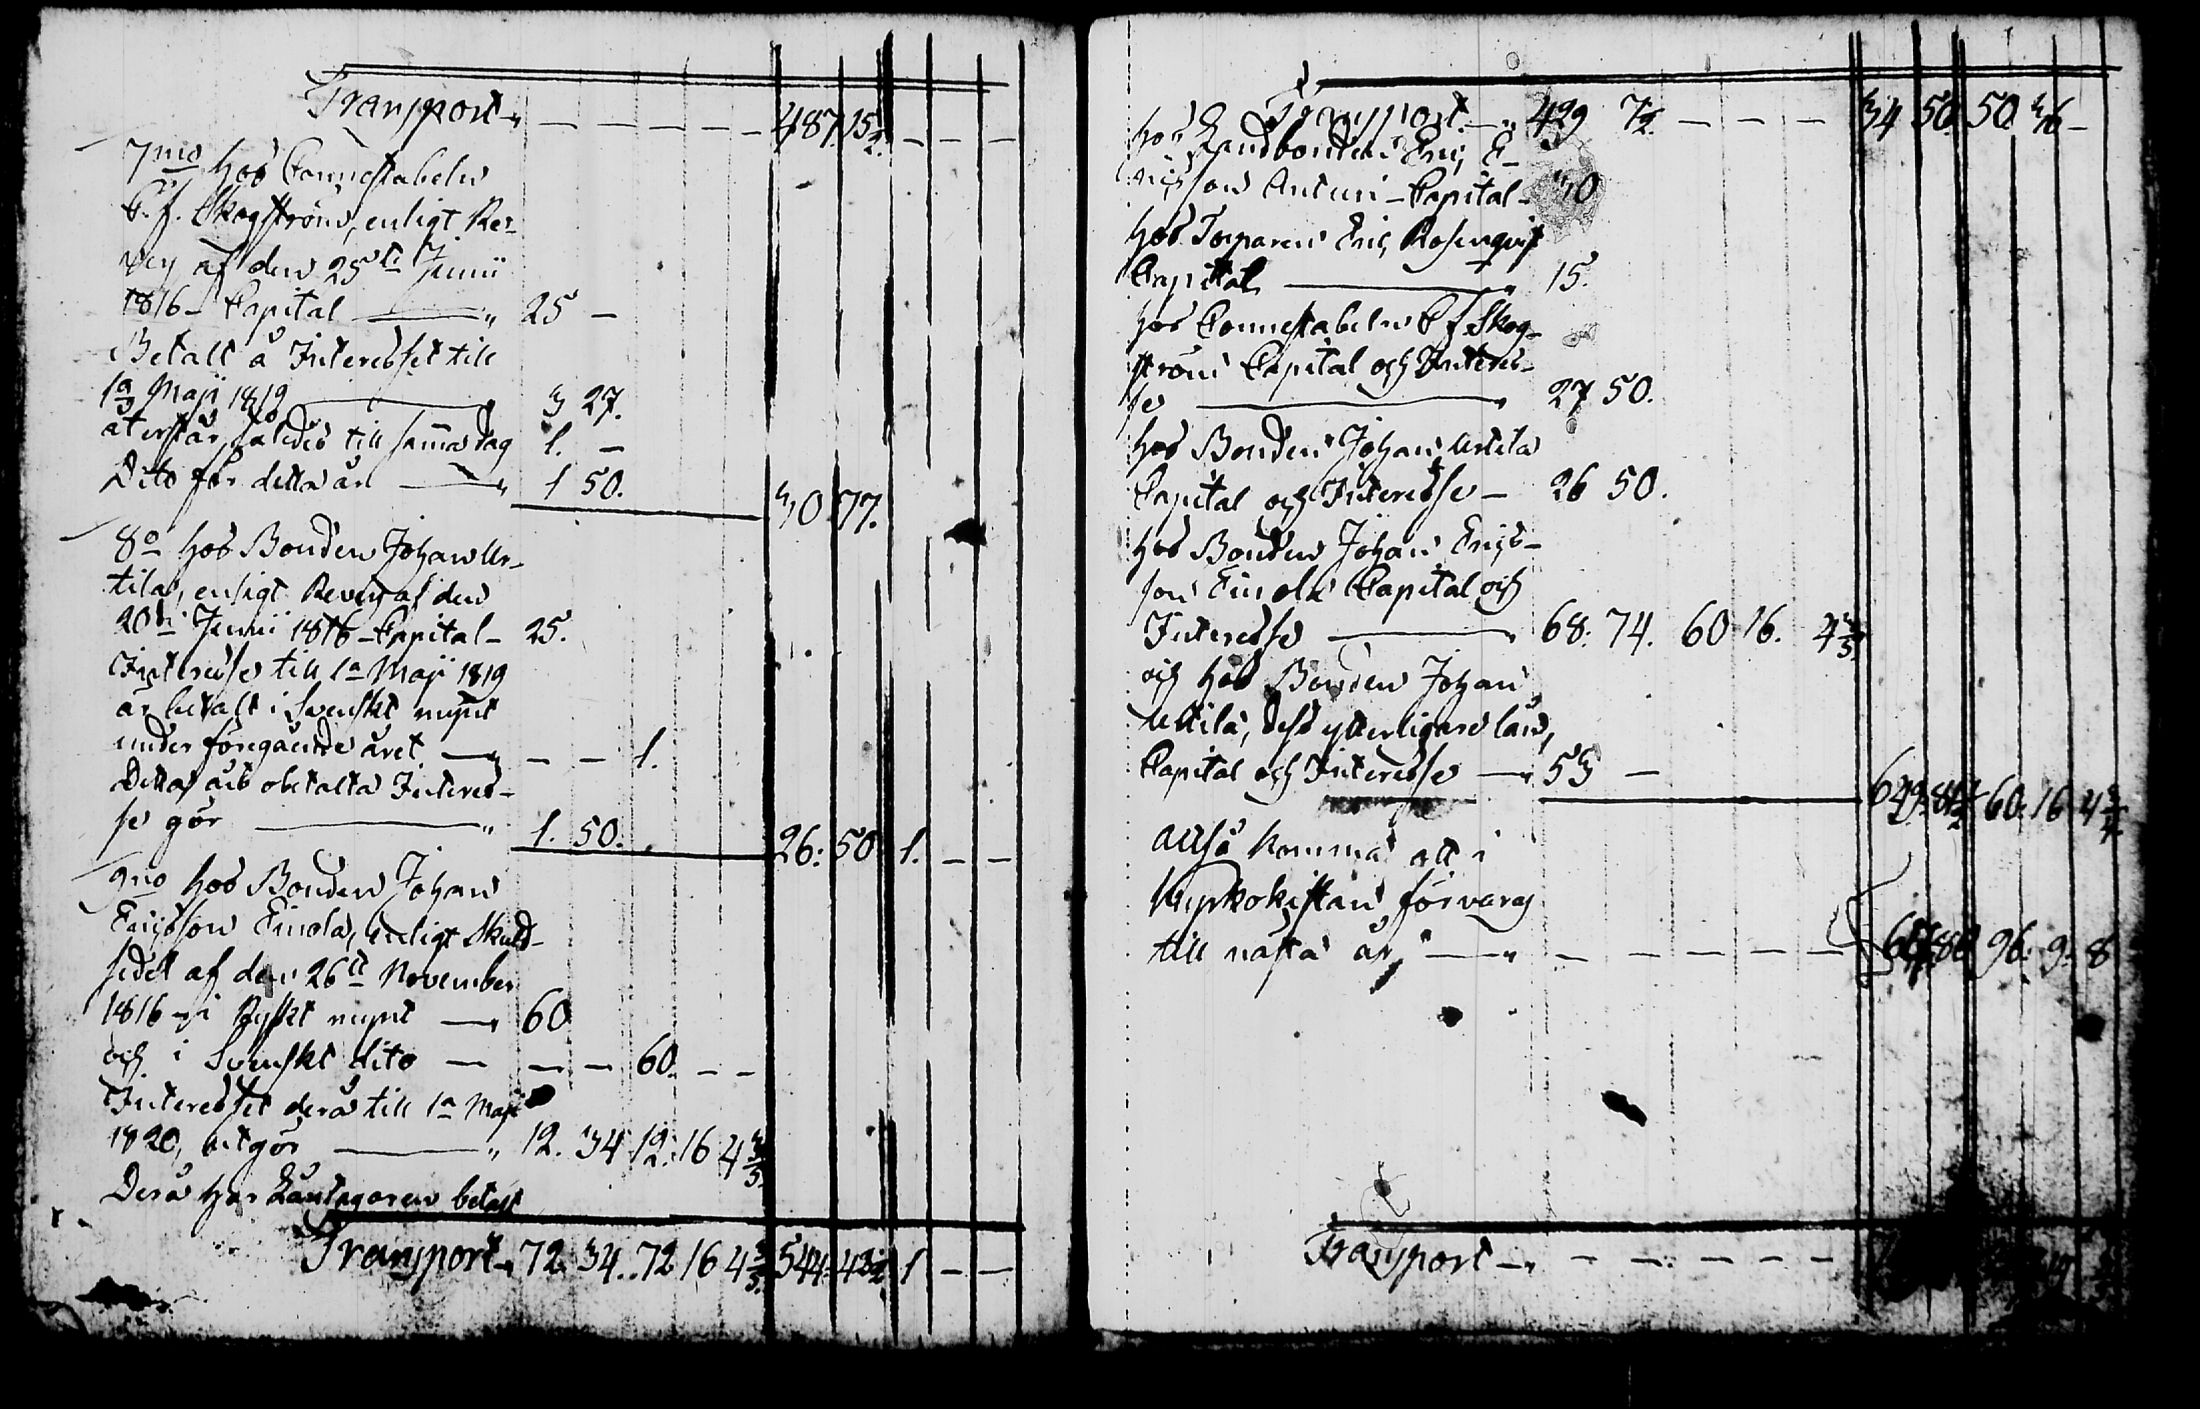 Transport „ — — — — — 487. 15½. — — —
7mo hos Connestabeln
C. f. Skogström, enligt Re-
vers af den 25te Junii
1816 - Capital — „ 25 —
Betalt å Interesset till
1a Maji 1819 — „ 3 27.
återstår, således till samma dag 1. —
Dito för detta år — „ 1 50. 30. 77.
8o hos Bonden Johan Ut-
tila, enligt Revers af den
20de Junii 1816 - Capital - 25.
Interesse till 1a Maji 1819
är betalt i Svenskt mynt
under föregående året — „ — — 1.
Detta års obetalta Interes-
se gör — „ 1. 50. 26: 50 1. — —
9no hos Bonden Johan
Ericsson Einola, enligt Skuld-
sedel af den 26te November
1816 - i Ryskt mynt — „ 60
och i Svenskt dito — — — 60. — —
Interesset derå till 1a Maji
1820, utgör — „ 12. 34 12. 16 4 3/5.
Derå har Låntagaren betalt
Transport „ 72. 34. 72 16 4 3/5. 544: 43½. 1 — —
Transport. — „ 429 7½. — — — 34 50. 50. 36 —
hos Landbonden Eric E-
ricsson Anturi - Capital - 30
hos Torparen Eric Rosenqvist
Capital — „ 15.
hos Connestabeln C f. Skog-
ström Capital och Interes-
se — „ 27 50.
hos Bonden Johan Uttila
Capital och Interesse — 26 50.
hos Bonden Johan Erics-
son Einola Capital och
Interesse — „ 68: 74. 60 16. 4 3/5.
och hos Bonden Johan
Uttila, dess ytterligare lån,
Capital och Interesse — „ 53 — 649: 81½ 60. 16 4
Altså komma att i
Kyrkokistan förvaras
till nästa år, — „ — — — — — 96. 9. 8
Transport — „ — — — — —